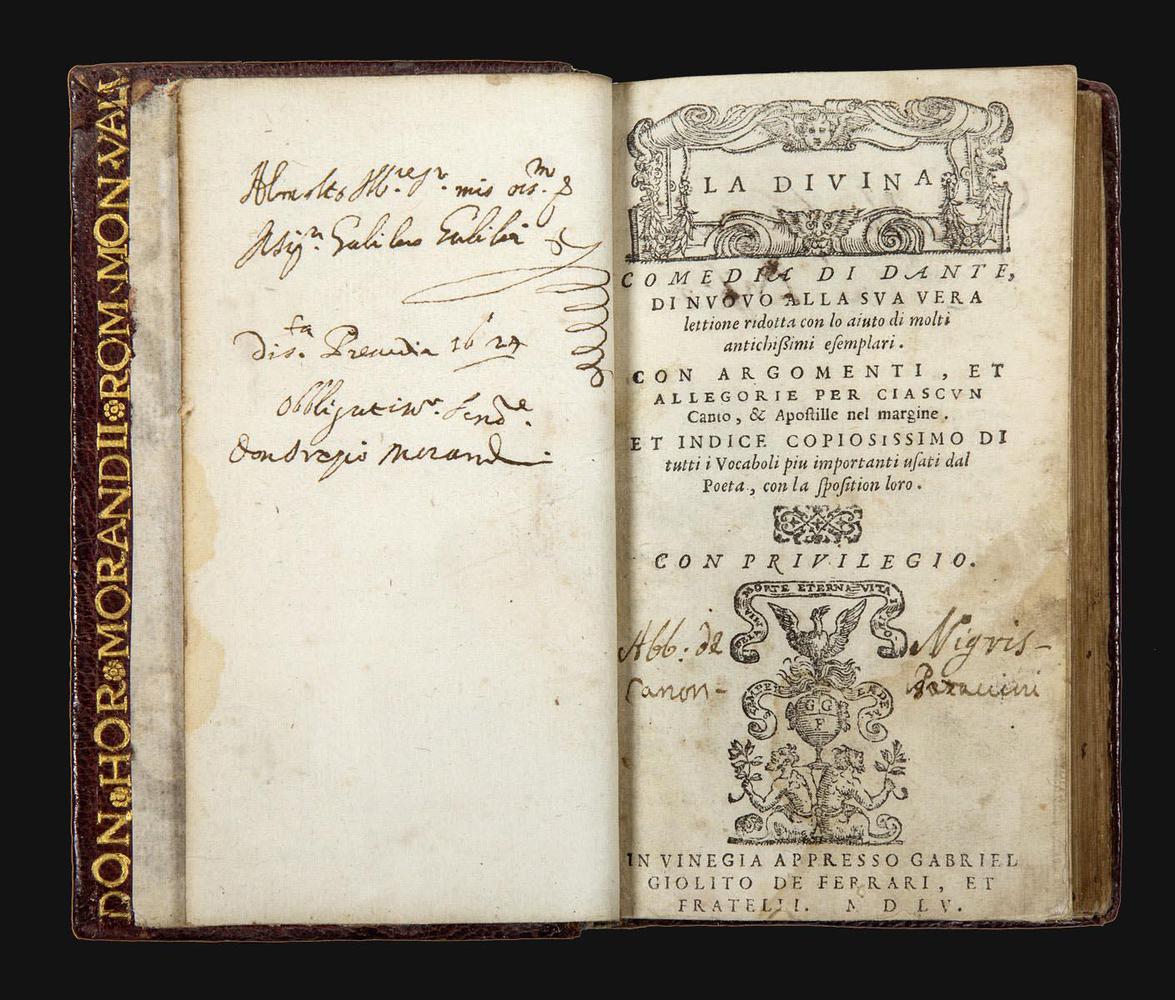 DON HOR MORANDII ROM MON VAL
Galileo Galilei
1624
LA DIVINA
COMEDIA DI DANTE,
DI NVOVO ALLA SVA VERA
lettione ridotta con lo aiuto di molti
antichißimi eſemplari.
CON ARGOMENTI, ET
ALLEGORIE PER CIASCVN
Canto, & Apoſtille nel margine.
ET INDICE COPIOSISSIMO DI
tutti i Vocaboli piu importanti uſati dal
Poeta, con la ſpoſition loro.
CON PRIVILEGIO.
MORTE ETERNA VITA
Abb: de Nigris-
Canon-
SEMPER EADEM
GG
F
IN VINEGIA APPRESSO GABRIEL
GIOLITO DE FERRARI, ET
FRATELLI. M D LV.